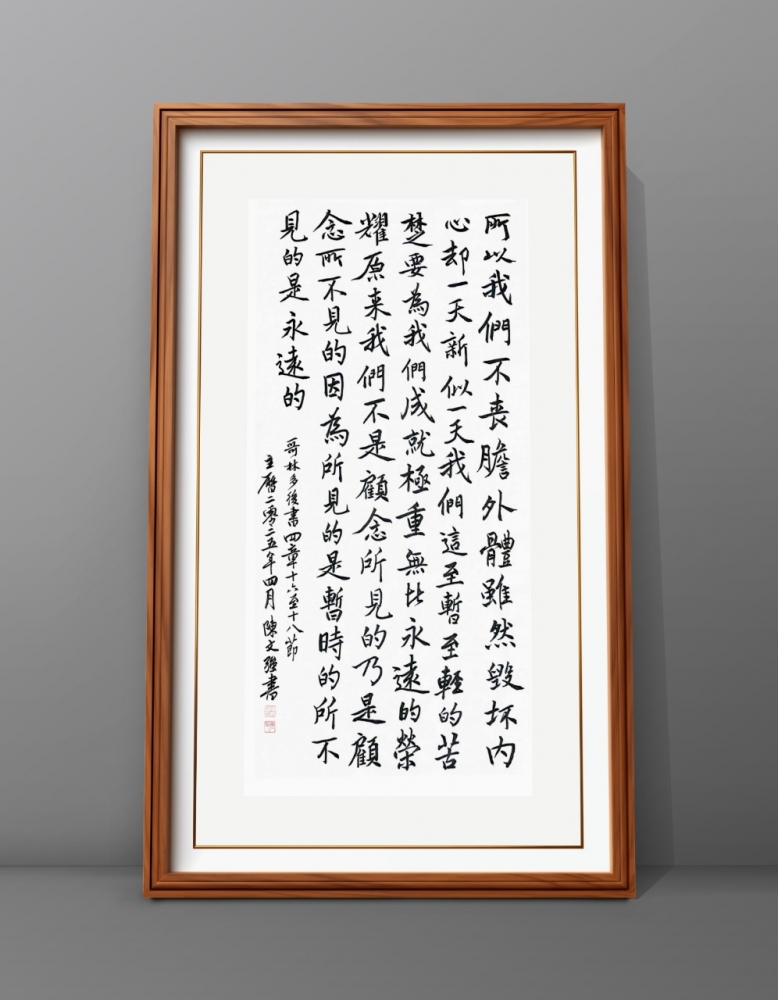 所以我們不喪膽外體雖然毀坏內
心却一天新似一天我們這至暫至輕的苦
楚要為我們成就極重無比永遠的榮
耀原来我們不是顧念所見的乃是顧
念所不見的因為所見的是暫時的所不
見的是永遠的
哥林多後書四章十六至十八節
主曆二零二五年四月 陳文强書